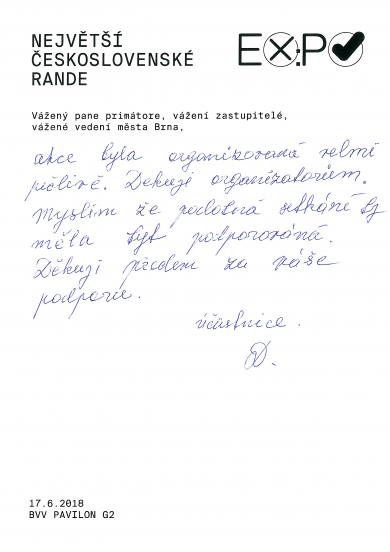 NEJVĚTŠÍ
ČESKOSLOVENSKÉ
RANDE
EX:PO
Vážený pane primátore, vážení zastupitelé,
vážené vedení města Brna,
akce byla organizovaná velmi
pečlivě. Děkuji organizátorům.
Myslím že podobná setkání by
měla být podporována.
Děkuji předem za vaše
podporu.
účastnice.
D.
17.6.2018
BVV PAVILON G2